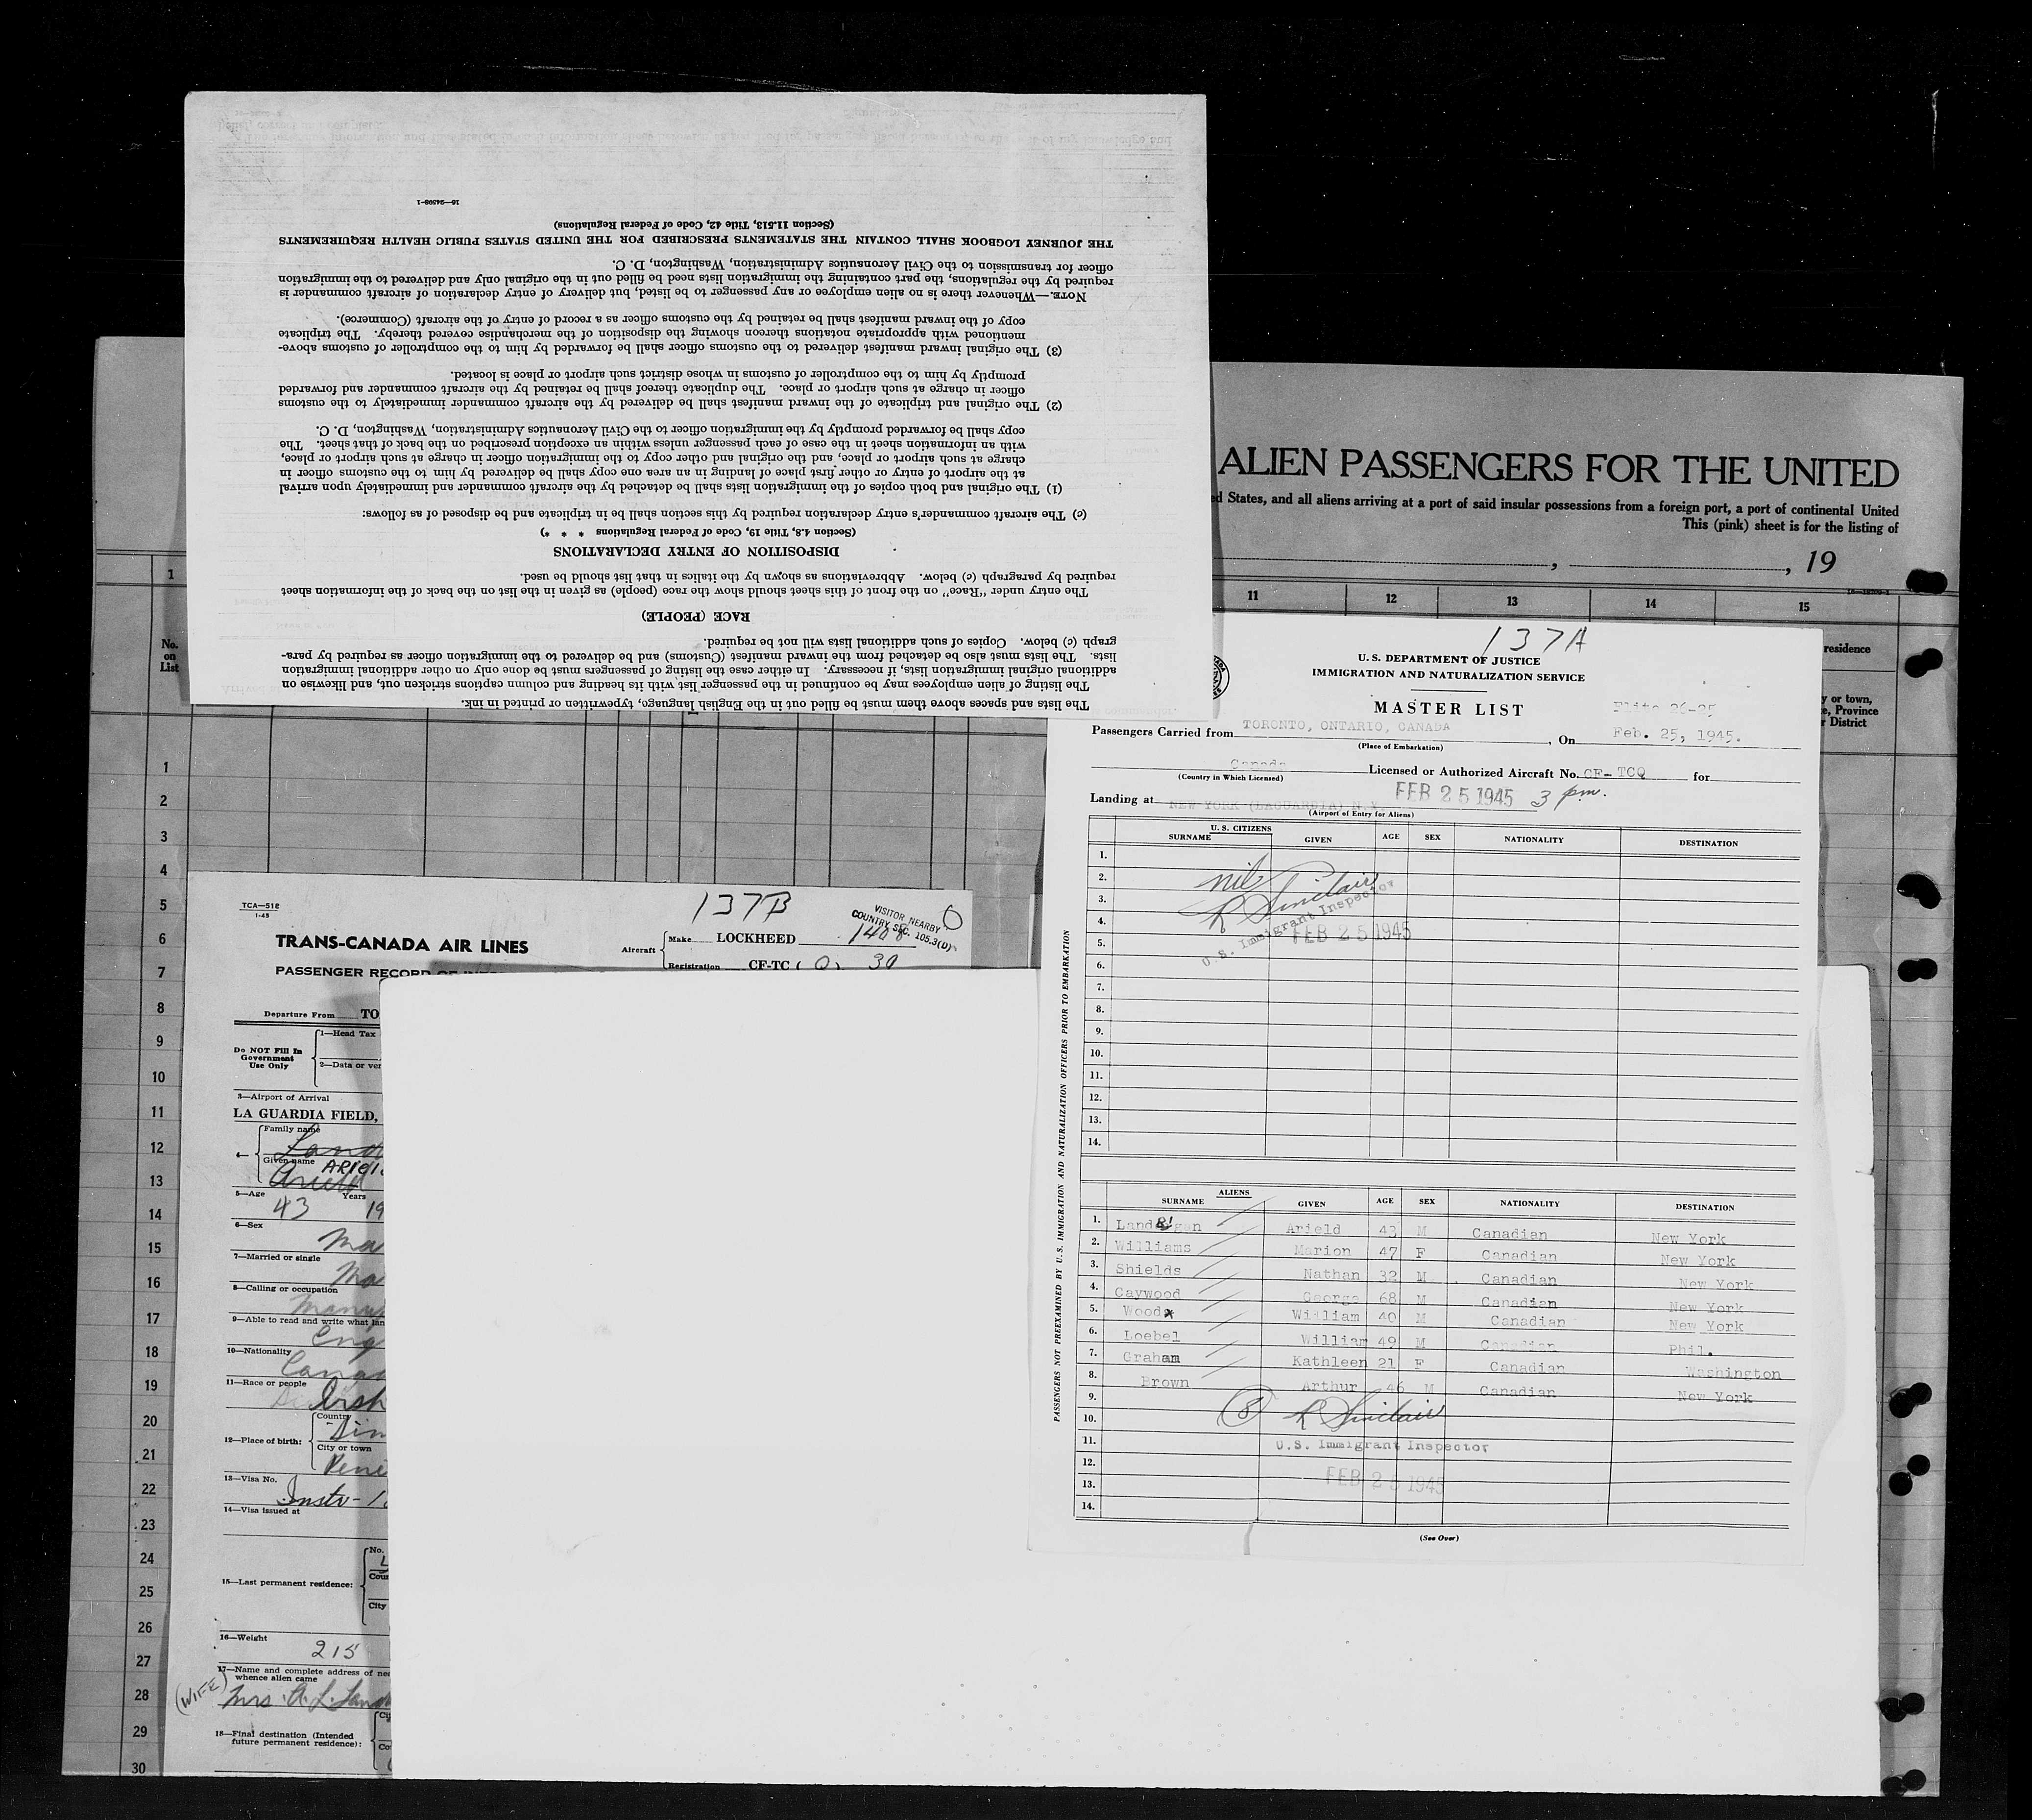 The lists and spaces above them must be filled out in the English language, typewritten or printed in ink.
The listing of alien employees may be continued in the passenger list with its heading and column captions stricken out, and likewise on
additional original immigration lists, if necessary. In either case the listing of passengers must be done only on other additional immigration
lists. The lists must also be detached from the inward manifest (Customs) and be delivered to the immigration officer as required by para-
graph (c) below. Copies of such additional lists will not be required.
RACE (PEOPLE)
The entry under "Race" on the front of this sheet should show the race (people) as given in the list on the back of the information sheet
required by paragraph (c) below. Abbreviations as shown by the italics in that list should be used.
DISPOSITION OF ENTRY DECLARATIONS
(Section 4.8, Title 19, Code of Federal Regulations * * *)
(c) The aircraft commander's entry declaration required by this section shall be in triplicate and be disposed of as follows:
(1) The original and both copies of the immigration lists shall be detached by the aircraft commander and immediately upon arrival
at the airport of entry or other first place of landing in an area one copy shall be delivered by him to the customs officer in
charge at such airport or place, and the original and other copy to the immigration officer in charge at such airport or place,
with an information sheet in the case of each passenger unless within an exception prescribed on the back of that sheet. The
copy shall be forwarded promptly by the immigration officer to the Civil Aeronautics Administration, Washington, D. C.
(2) The original and triplicate of the inward manifest shall be delivered by the aircraft commander immediately to the customs
officer in charge at such airport or place. The duplicate thereof shall be retained by the aircraft commander and forwarded
promptly by him to the comptroller of customs in whose district such airport or place is located.
(3) The original inward manifest delivered to the customs officer shall be forwarded by him to the comptroller of customs above-
mentioned with appropriate notations thereon showing the disposition of the merchandise covered thereby. The triplicate
copy of the inward manifest shall be retained by the customs officer as a record of entry of the aircraft (Commerce).
NOTE.—Whenever there is no alien employee or any passenger to be listed, but delivery of entry declaration of aircraft commander is
required by the regulations, the part containing the immigration lists need be filled out in the original only and delivered to the immigration
officer for transmission to the Civil Aeronautics Administration, Washington, D. C.
THE JOURNEY LOGBOOK SHALL CONTAIN THE STATEMENTS PRESCRIBED FOR THE UNITED STATES PUBLIC HEALTH REQUIREMENTS
(Section 11.513, Title 42, Code of Federal Regulations)
16—24598-1
ALIEN PASSENGERS FOR THE UNITED
ed States, and all aliens arriving at a port of said insular possessions from a foreign port, a port of continental United
This (pink) sheet is for the listing of
, , 19
1 11 12 13 14 15
No.
on
List
residence
y or town,
e, Province
r District
1
2
3
4
5
6
7
8
9
10
11
12
13
14
15
16
17
18
19
20
21
22
23
24
25
26
27
28
29
30
137A
U. S. DEPARTMENT OF JUSTICE
IMMIGRATION AND NATURALIZATION SERVICE
MASTER LIST
Flite 26-25
Passengers Carried from TORONTO, ONTARIO, CANADA , On Feb. 25, 1945.
(Place of Embarkation)
Canada Licensed or Authorized Aircraft No. CF-TCQ for
(Country in Which Licensed)
FEB 25 1945 3 pm.
Landing at NEW YORK (LAGUARDIA) N.Y.
(Airport of Entry for Aliens)
U. S. CITIZENS
SURNAME GIVEN AGE SEX NATIONALITY DESTINATION
1.
2. nil
3. R Sinclair
4. U.S. Immigrant Inspector
5. FEB 25 1945
6.
7.
8.
9.
10.
11.
12.
13.
14.
ALIENS
SURNAME GIVEN AGE SEX NATIONALITY DESTINATION
1. Landrigan Arield 43 M Canadian New York
2. Williams Marion 47 F Canadian New York
3. Shields Nathan 32 M Canadian New York
4. Caywood George 68 M Canadian New York
5. Woods William 40 M Canadian New York
6. Loebel William 49 M Canadian Phil.
7. Graham Kathleen 21 F Canadian Washington
8. Brown Arthur 46 M Canadian New York
9.
10. (8) R Sinclair
11. U.S. Immigrant Inspector
12.
13. FEB 25 1945
14.
(See Over)
PASSENGERS NOT PREEXAMINED BY U.S. IMMIGRATION AND NATURALIZATION OFFICERS PRIOR TO EMBARKATION
TCA—518
1-45
137B
VISITOR NEARBY
COUNTRY SEC. 105.3(D)
TRANS-CANADA AIR LINES
PASSENGER RECORD OF
Aircraft Make LOCKHEED 1408
Registration CF-TC ( Q ) 30
Departure From TO
Do NOT Fill In
Government
Use Only
1—Head Tax
2—Data or ver
3—Airport of Arrival
LA GUARDIA FIELD,
4— Family name
Land
Given name ARIEL
Arield
5—Age Years
43 19
6—Sex
Ma
7—Married or single
Ma
8—Calling or occupation
Manu
9—Able to read and write what lan
Eng
10—Nationality
Cana
11—Race or people
Irish
12—Place of birth: Country
City or town
Pene
13—Visa No.
Instr-
14—Visa issued at
15—Last permanent residence: No.
Coun
City
16—Weight
215
17—Name and complete address of nea
whence alien came
(WIFE) Mrs. A. L. Land
18—Final destination (Intended
future permanent residence): Cit
Co